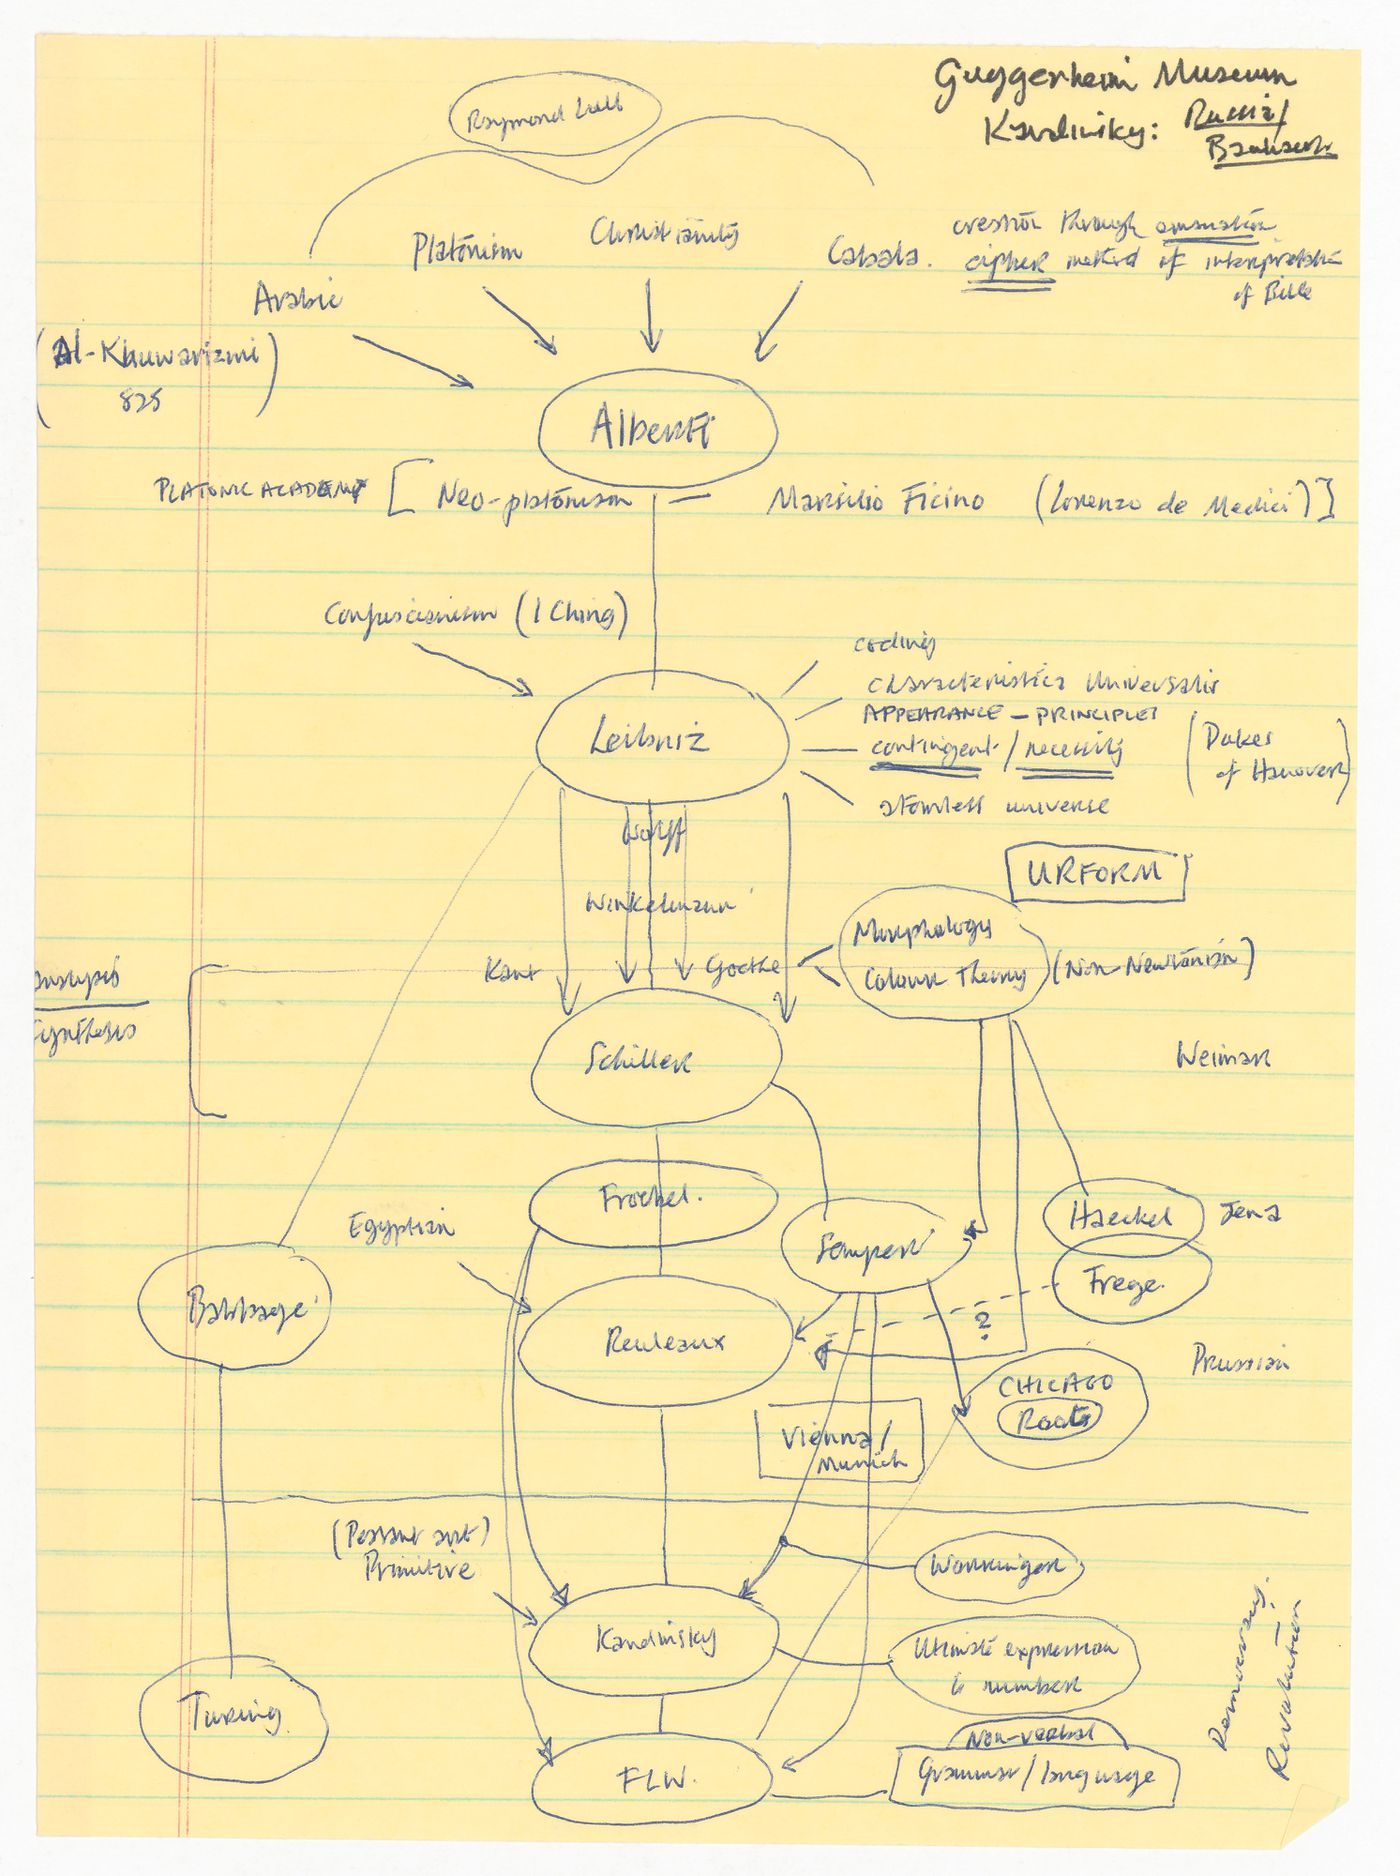 Guggenheim Museum
Kandinsky: Russia/
Bauhaus
Raymond Lull
Platonism
Christianity
Cabala.
creation through emanation
cipher method of interpretation
of Bible
Arabic
(Al-Khuwarizmi)
825
Alberti
PLATONIC ACADEMY
[Neo-platonism —
Marsilio Ficino (Lorenzo de Medici)]
Confucianism (I Ching)
coding
characteristica universalis
APPEARANCE – PRINCIPLES
contingent / necessity
(Dukes
of Hanover)
atomless universe
Leibniz
Wolff
URFORM
Winkelmann
Morphology
Colour Theory
(Non-Newtonian)
Kant
Goethe
Synthesis
Schiller
Weimar
Froebel.
Haeckel
Jena
Egyptian
Semper
Frege.
Babbage
Reuleaux
?
Prussian
CHICAGO
Roots
Vienna/
Munich
(Peasant art)
Primitive
Worringer
Kandinsky
Ultimate expression
is number
Democracy.
Revolution
Turing
Non-verbal
Grammar/language
FLW.